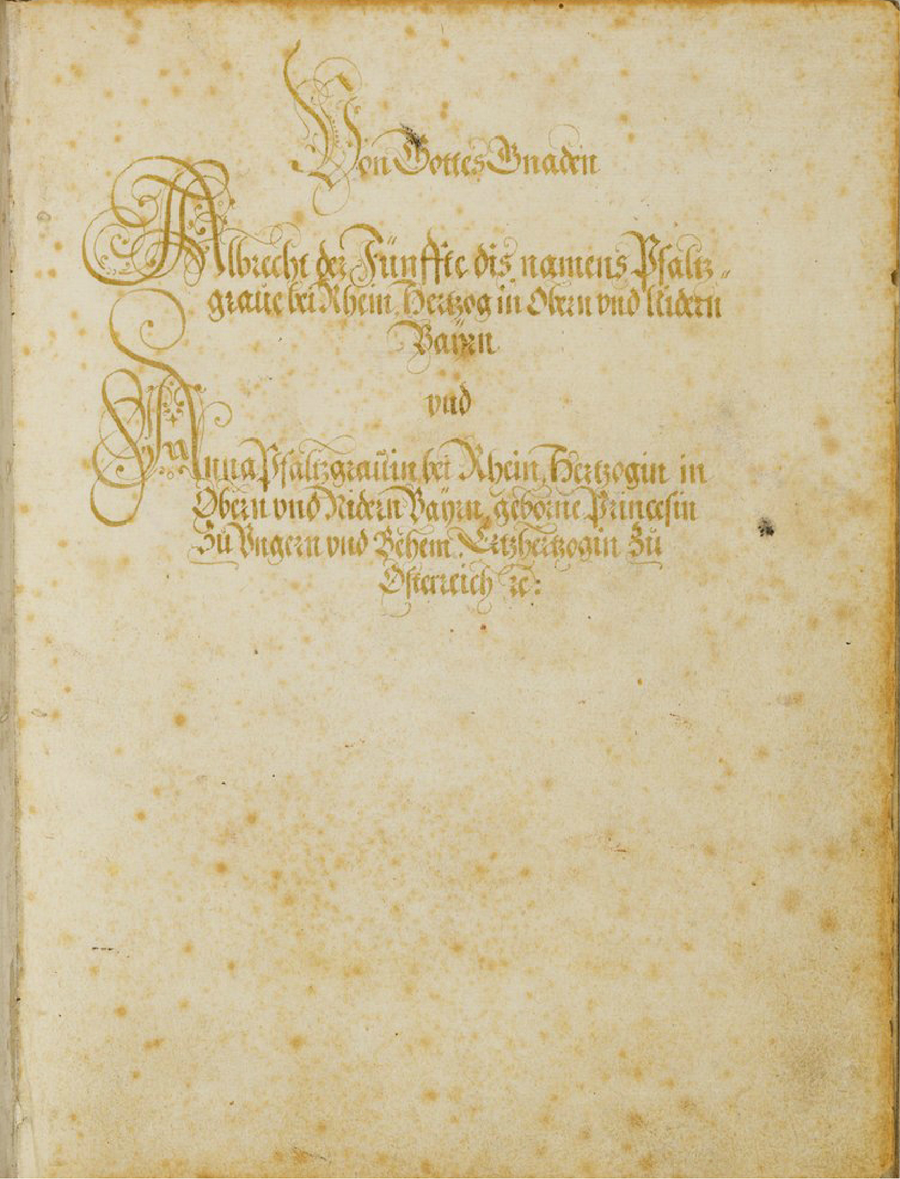 Von Gottes Gnaden
Albrecht der Fünffte dis namens Pfaltz„
graue bei Rhein, Hertzog in Obern vnd Nidern
Bayrn
vnd
Anna Pfaltzgrauin bei Rhein, Hertzogin in
Obern vnd Nidern Bayrn, geborne Princesin
Zu Vngern vnd Behem, Ertzhertzogin Zu
Osterreich ꝛc: